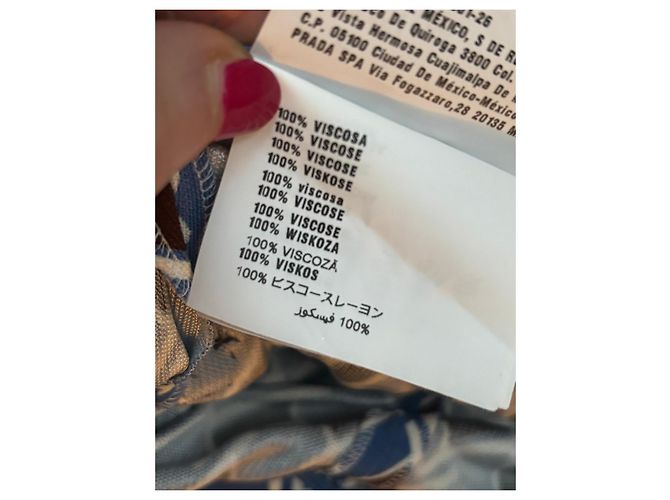 -26
MÉXICO, S DE R
De Quiroga 3800 Col.
Vista Hermosa Cuajimalpa De
C.P. 05100 Ciudad De México-México
PRADA SPA Via Fogazzaro,28 20135 M
100% VISCOSA
100% VISCOSE
100% VISCOSE
100% VISKOSE
100% viscosa
100% VISCOSE
100% VISCOSE
100% WISKOZA
100% VISCOZĂ
100% VISKOS
100% ビスコースレーヨン
100% فيسكوز